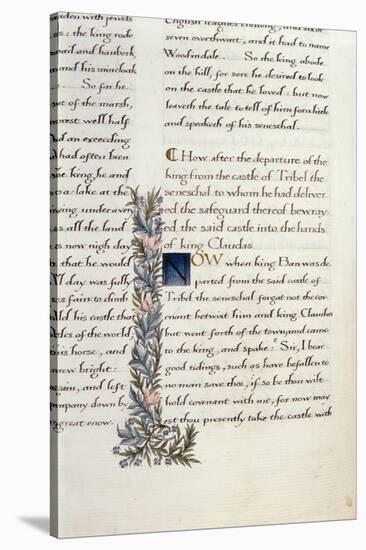 den with jewels
es: the king rode
ail and hauberk
and his raincloak
. So far he
ut of the marsh,
rest well half
nd an exceeding
d had often been
he king, he and
pa lake at the
ing under a very
es all the land
was now nigh day
that he would
Al day was fully
res fain to climb
ld his castle that
eles of the world
his horse, and
rew bright:
gain, and left
mpany down by
great enow.
English leagues endlong, and six or
seven overthwart, and it had to name
Wood in dale. So the king abode
on the hill, for sore he desired to look
on the castle that he loved: but now
leaveth the tale to tell of him for a little
and speaketh of his seneschal.
CHow after the departure of the
king from the castle of Tribel the
seneschal to whom he had deliver
ed the safeguard thereof bewray
ed the said castle into the hands
of king Claudas.
NOW when king Ban was de
parted from the said castle of
Tribel the seneschal forgat not the cov
enant betwixt him and king Claudas
but went forth of the town, and came
to the king, and spake: Sir, I bear
good tidings, such as have befallen to
no man save thee, if so be thou wilt
hold covenant with me, for now may
est thou presently take the castle with